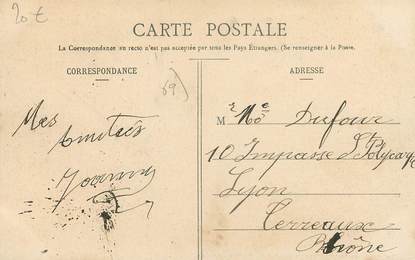 20 €
CARTE POSTALE
La Correspondance au recto n'est pas acceptée par tous les Pays Étrangers. (Se renseigner à la Poste.
CORRESPONDANCE
ADRESSE
69)
Mes
Amitiés
Joanny
M r Mo e Dufour
10 Impasse St Polycarpe
Lyon
Terreaux
Rhône